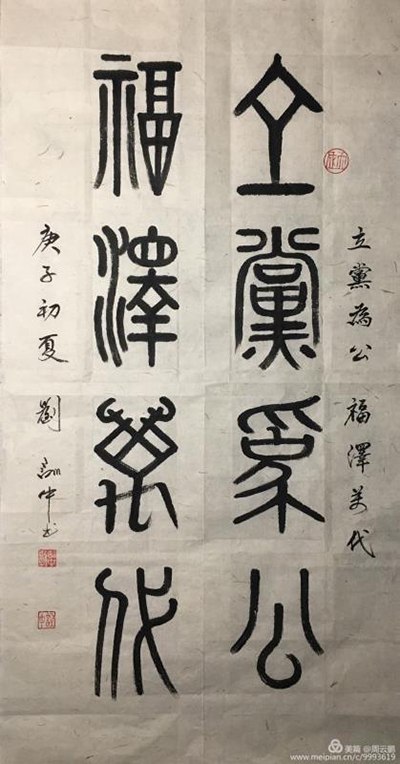 立黨為公 福澤萬代
立黨為公
福澤萬代
庚子初夏 劉訓中书
美篇 @周云鹏
www.meipian.cn/c/9993619